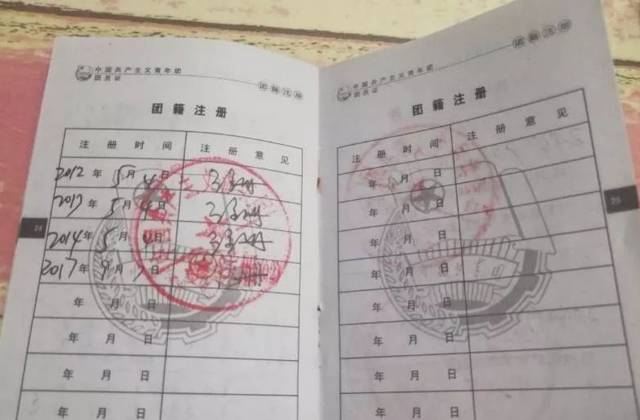 中国共产主义青年团
团员证
团籍注册
团籍注册
注册时间 注册意见
2012年5月4日 已注册
2013年5月4日 已注册
2014年5月4日 已注册
2017年9月 日
年 月 日
年 月 日
年 月 日
年 月 日
24
中国共产主义青年团
团员证
团籍注册
团籍注册
注册时间 注册意见
年 月 日
年 月 日
年 月 日
年 月 日
年 月 日
年 月 日
年 月 日
年 月 日
25